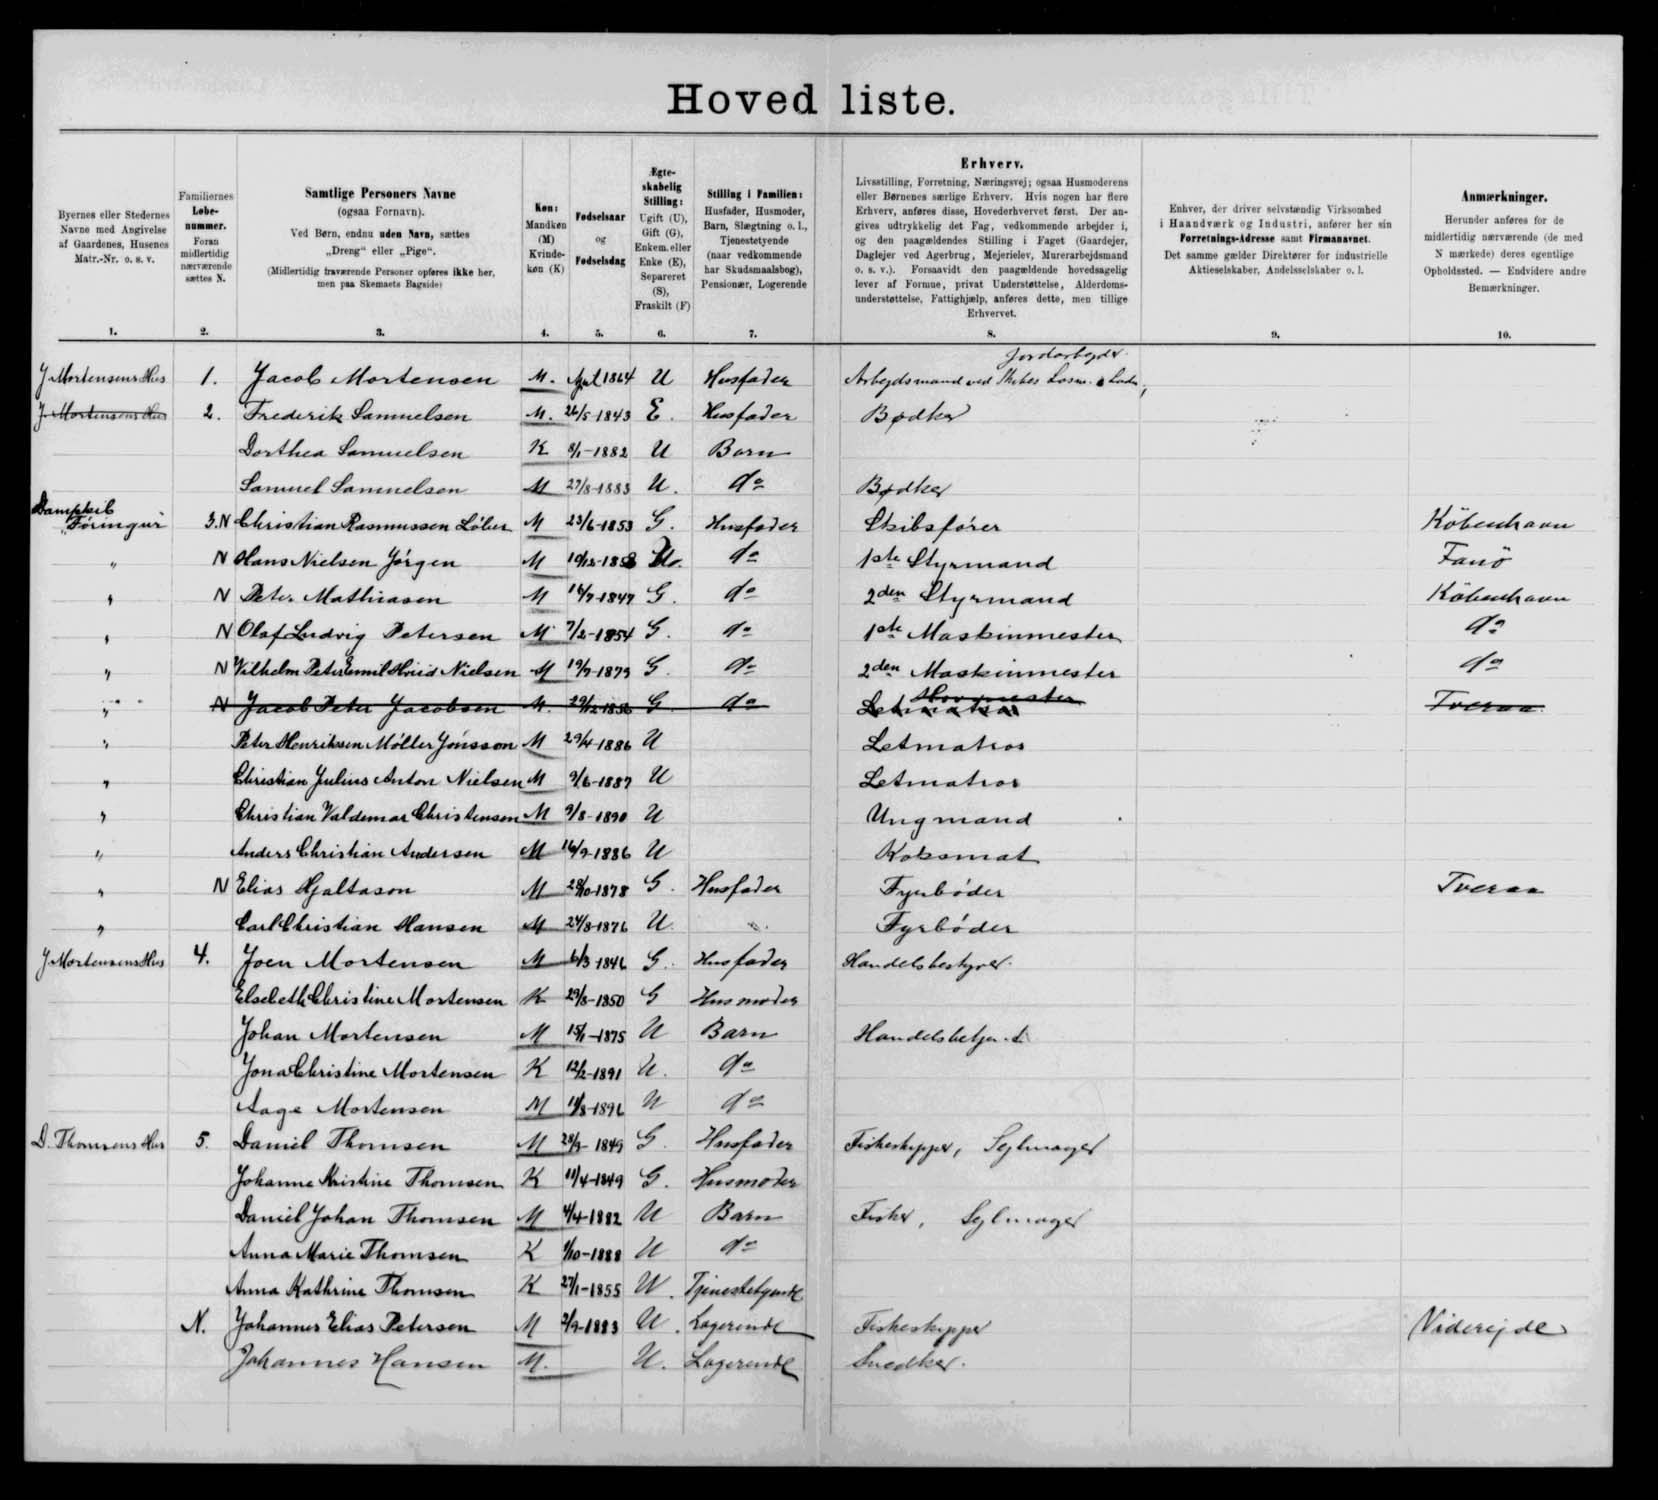 Hoved liste.
Byernes eller Stedernes Navne med Angivelse af Gaardenes, Husenes Matr.-Nr. o. s. v.
Familiernes Løbe-nummer. Foran midlertidig nærværende sættes N.
Samtlige Personers Navne (ogsaa Fornavn). Ved Børn, endnu uden Navn, sættes „Dreng“ eller „Pige“. (Midlertidig fraværende Personer opføres ikke her, men paa Skemaets Bagside)
Køn: Mandkøn (M) Kvinde-køn (K)
Fødselsaar og Fødselsdag
Ægte-skabelig Stilling: Ugift (U), Gift (G), Enkem. eller Enke (E), Separeret (S), Fraskilt (F)
Stilling i Familien: Husfader, Husmoder, Barn, Slægtning o. l., Tjenestetyende (naar vedkommende har Skudsmaalsbog), Pensionær, Logerende
Erhverv. Livsstilling, Forretning, Næringsvej; ogsaa Husmoderens eller Børnenes særlige Erhverv. Hvis nogen har flere Erhverv, anføres disse, Hovederhvervet først. Der angives udtrykkelig det Fag, vedkommende arbejder i, og den paagældendes Stilling i Faget (Gaardejer, Daglejer ved Agerbrug, Mejerielev, Murerarbejdsmand o. s. v.). Forsaavidt den paagældende hovedsagelig lever af Formue, privat Understøttelse, Alderdoms-understøttelse, Fattighjælp, anføres dette, men tillige Erhvervet.
Enhver, der driver selvstændig Virksomhed i Haandværk og Industri, anfører her sin Forretnings-Adresse samt Firmanavnet. Det samme gælder Direktører for industrielle Aktieselskaber, Andelsselskaber o. l.
Anmærkninger. Herunder anføres for de midlertidig nærværende (de med N mærkede) deres egentlige Opholdssted. — Endvidere andre Bemærkninger.
1. 2. 3. 4. 5. 6. 7. 8. 9. 10.
Jordarbejder
J Mortensens Hus 1. Jacob Mortensen M. 1864 U Husfader Arbejdsmand ved Skibes Losn. & Ladn,
J. Mortensens Hus 2. Frederik Samuelsen M. 26/5-1843 E. Husfader Bødker
Dorthea Samuelsen K 8/1-1882 U Barn
Samuel Samuelsen M 27/8-1883 U. do Bødker
Dampskib
„Föringur“ 3. N Christian Rasmussen Löber M 23/6-1853 G. Husfader Skibsförer Köbenhavn
" N Hans Nielsen Jörgen M do 1ste Styrmand Fanö
" N Peter Mathiasen M 14/7-1847 G. do 2den Styrmand Köbenhavn
" N Olaf Ludvig Petersen M 7/2-1854 G. do 1ste Maskinmester do
" N Vilhelm Peter Emil Hviid Nielsen M 19/9-1879 G. do 2den Maskinmester do
" N Jacob Peter Jacobsen M. 29/12-1856 G do Letmatros Hovmester Tveraa
" Peter Henriksen Möller Jónsson M 29/4-1886 U Letmatros
" Christian Julius Anton Nielsen M 9/6-1887 U Letmatros
" Christian Valdemar Christensen M 9/8-1890 U Ungmand
" Anders Christian Andersen M 16/9-1886 U Koksmat
" N Elias Hjaltason M 28/10-1878 G. Husfader Fyrböder Tveraa
" Carl Christian Hansen M 24/8-1876 U. Fyrböder
J Mortensens Hus 4. Joen Mortensen M 6/3 1846 G. Husfader Handelsbestyrer.
Elsebeth Christine Mortensen K 29/8-1850 G Husmoder
Johan Mortensen M 15/1-1875 U Barn Handelsbetjent
Jona Christine Mortensen K 12/2-1891 U. do
Aage Mortensen M 11/8-1896 U do
D. Thomsens Hus 5. Daniel Thomsen M 28/9-1849 G. Husfader Fiskeskipper, Sejlmager
Johanne Kristine Thomsen K 11/4-1849 G. Husmoder
Daniel Johan Thomsen M 4/4-1882 U Barn Fisker, Sejlmager
Anna Marie Thomsen K 9/10-1888 U do
Anna Kathrine Thomsen K 27/1-1855 U. Tjenestetyende
N. Johannes Elias Petersen M 2/9-1883 U. Logerende Fiskeskipper Viderejde
Johannes Hansen M. U. Logerende Snedker.